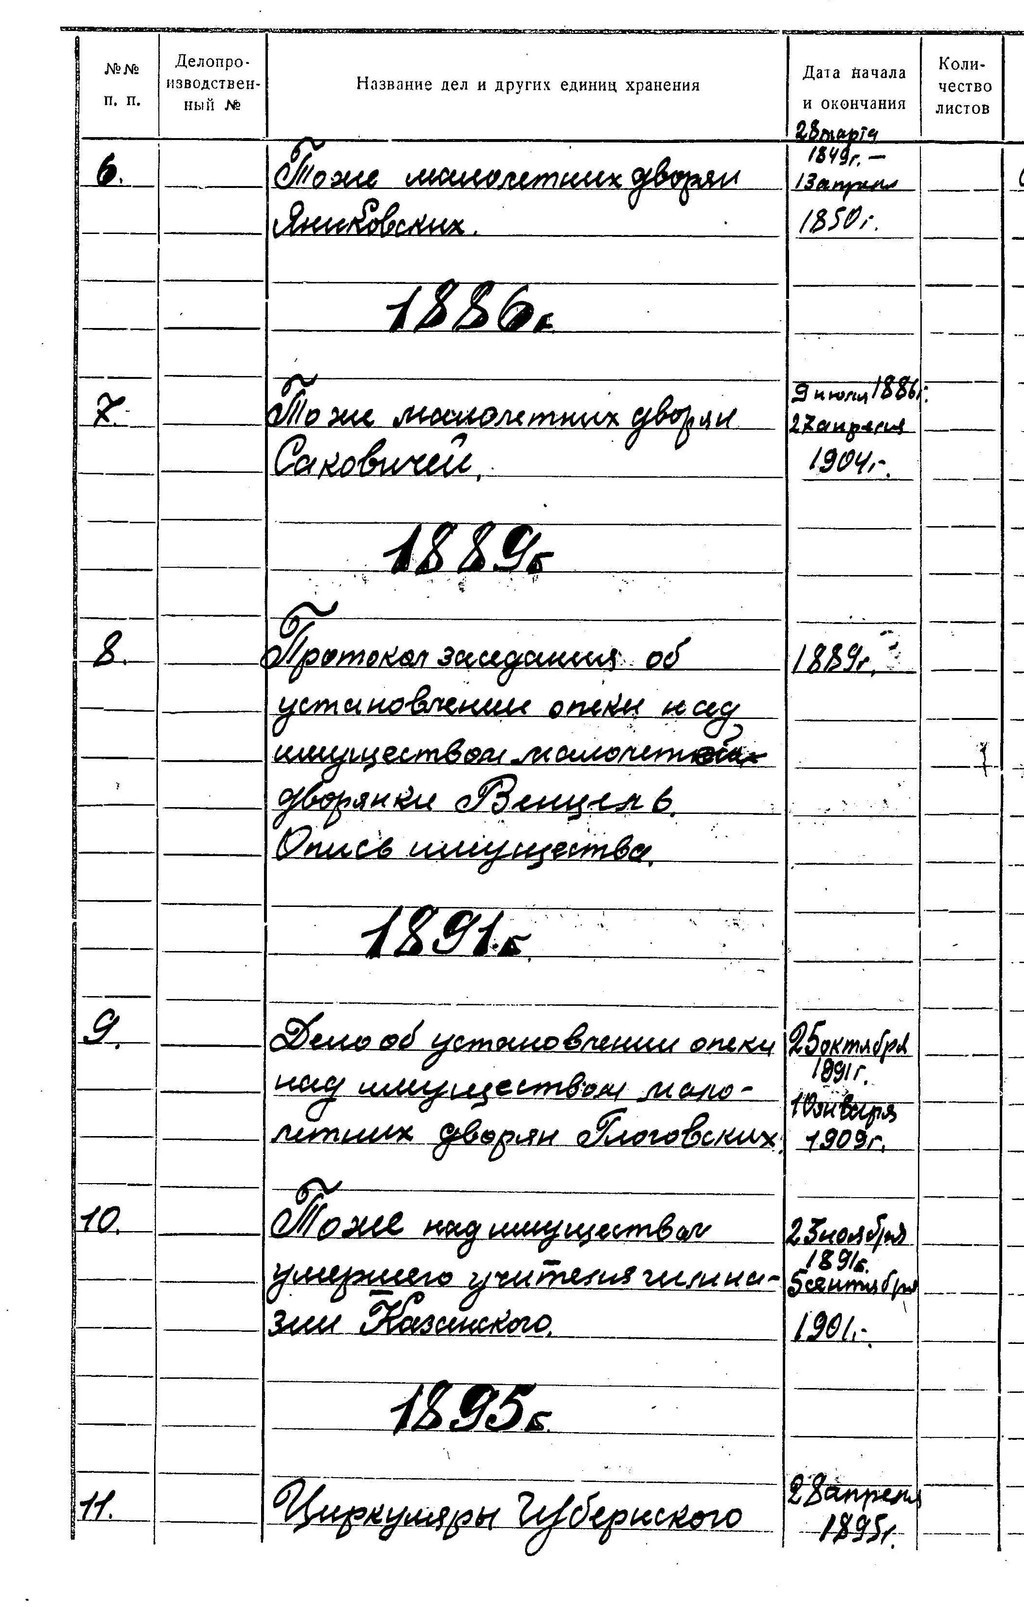 №№
п. п.
Делопро-
изводствен-
ный №
Название дел и других единиц хранения
Дата начала
и окончания
Коли-
чество
листов
6.
Тоже малолетних дворян
Яниковских.
28 марта
1849г. –
13 апреля
1850г.
1886г.
7.
Тоже малолетних дворян
Саковичей.
9 июля 1886г.
27 апреля
1904г.
1889г.
8.
Протокол заседания об
установлении опеки над
имуществом малолетней
дворянки Венцель.
Опись имущества.
1889г.
1891.г.
9.
Дело об установлении опеки
над имуществом мало-
летних дворян Глоговских.
25 октября
1891г.
10 января
1909г.
10.
Тоже над имуществом
умершего учителя гимна-
зии Казанского.
23 ноября
1891г.
5 сентября
1901.-
1895г.
11.
Циркуляры Губернского
28 апреля
1895г.